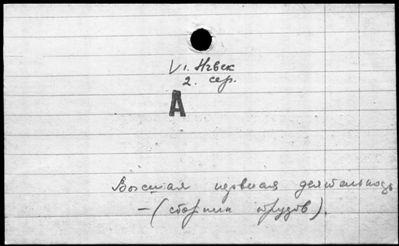 VI. Нгвск
2. сер.
А
Высшая нервная деятельность
— (сборник трудов).